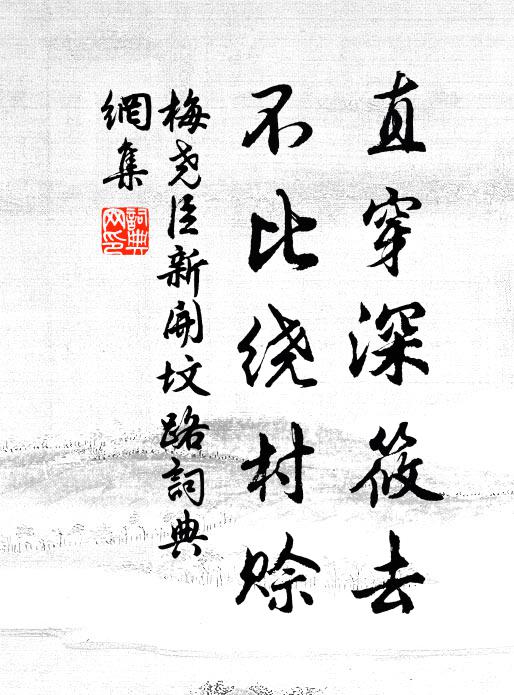 直穿深筱去
不比绕村赊
梅尧臣新開坟路詞典
網集
詞典
网印